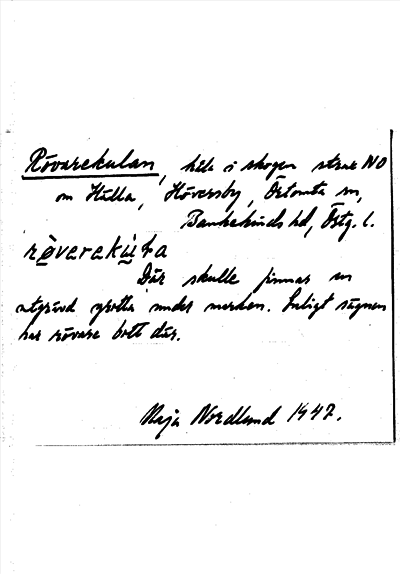 Rövarekulan, håla i skogen strax NO
om Hulla, Höversby, Örtomta sn,
Bankekinds hd, Östg. l.
röverekụ̀ɫa
Där skulle finnas en
utgrävd grotta under marken. Enligt sägnen
har rövare bott där.
Maja Nordlund 1947.